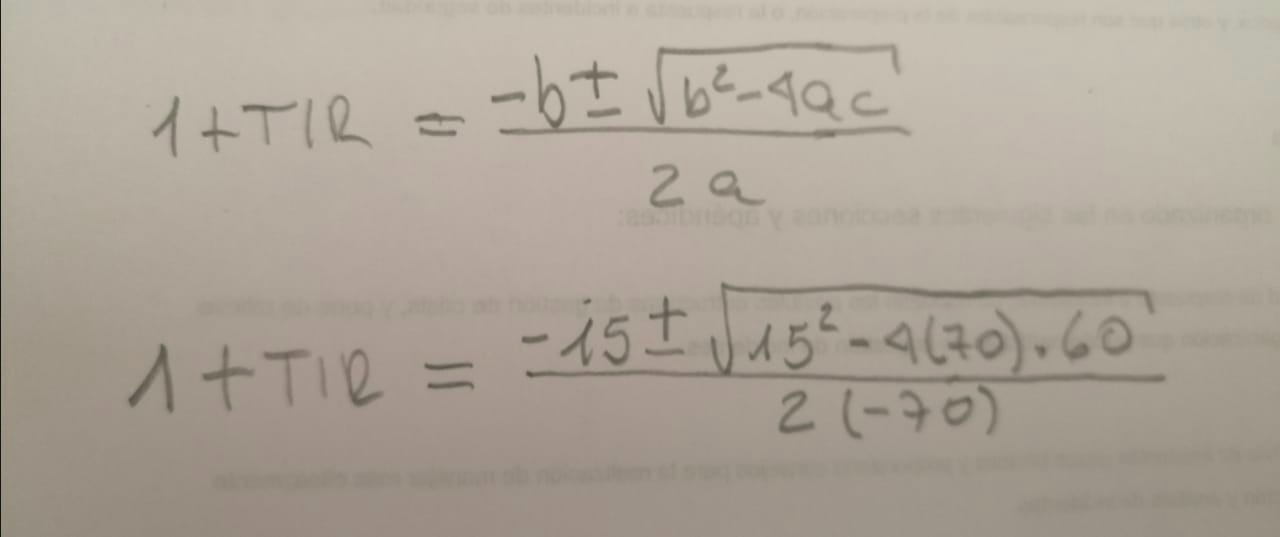 1+TIR = -b ± √b²-4ac / 2a
1+TIR = -15 ± √15²-4(70)·60 / 2(-70)